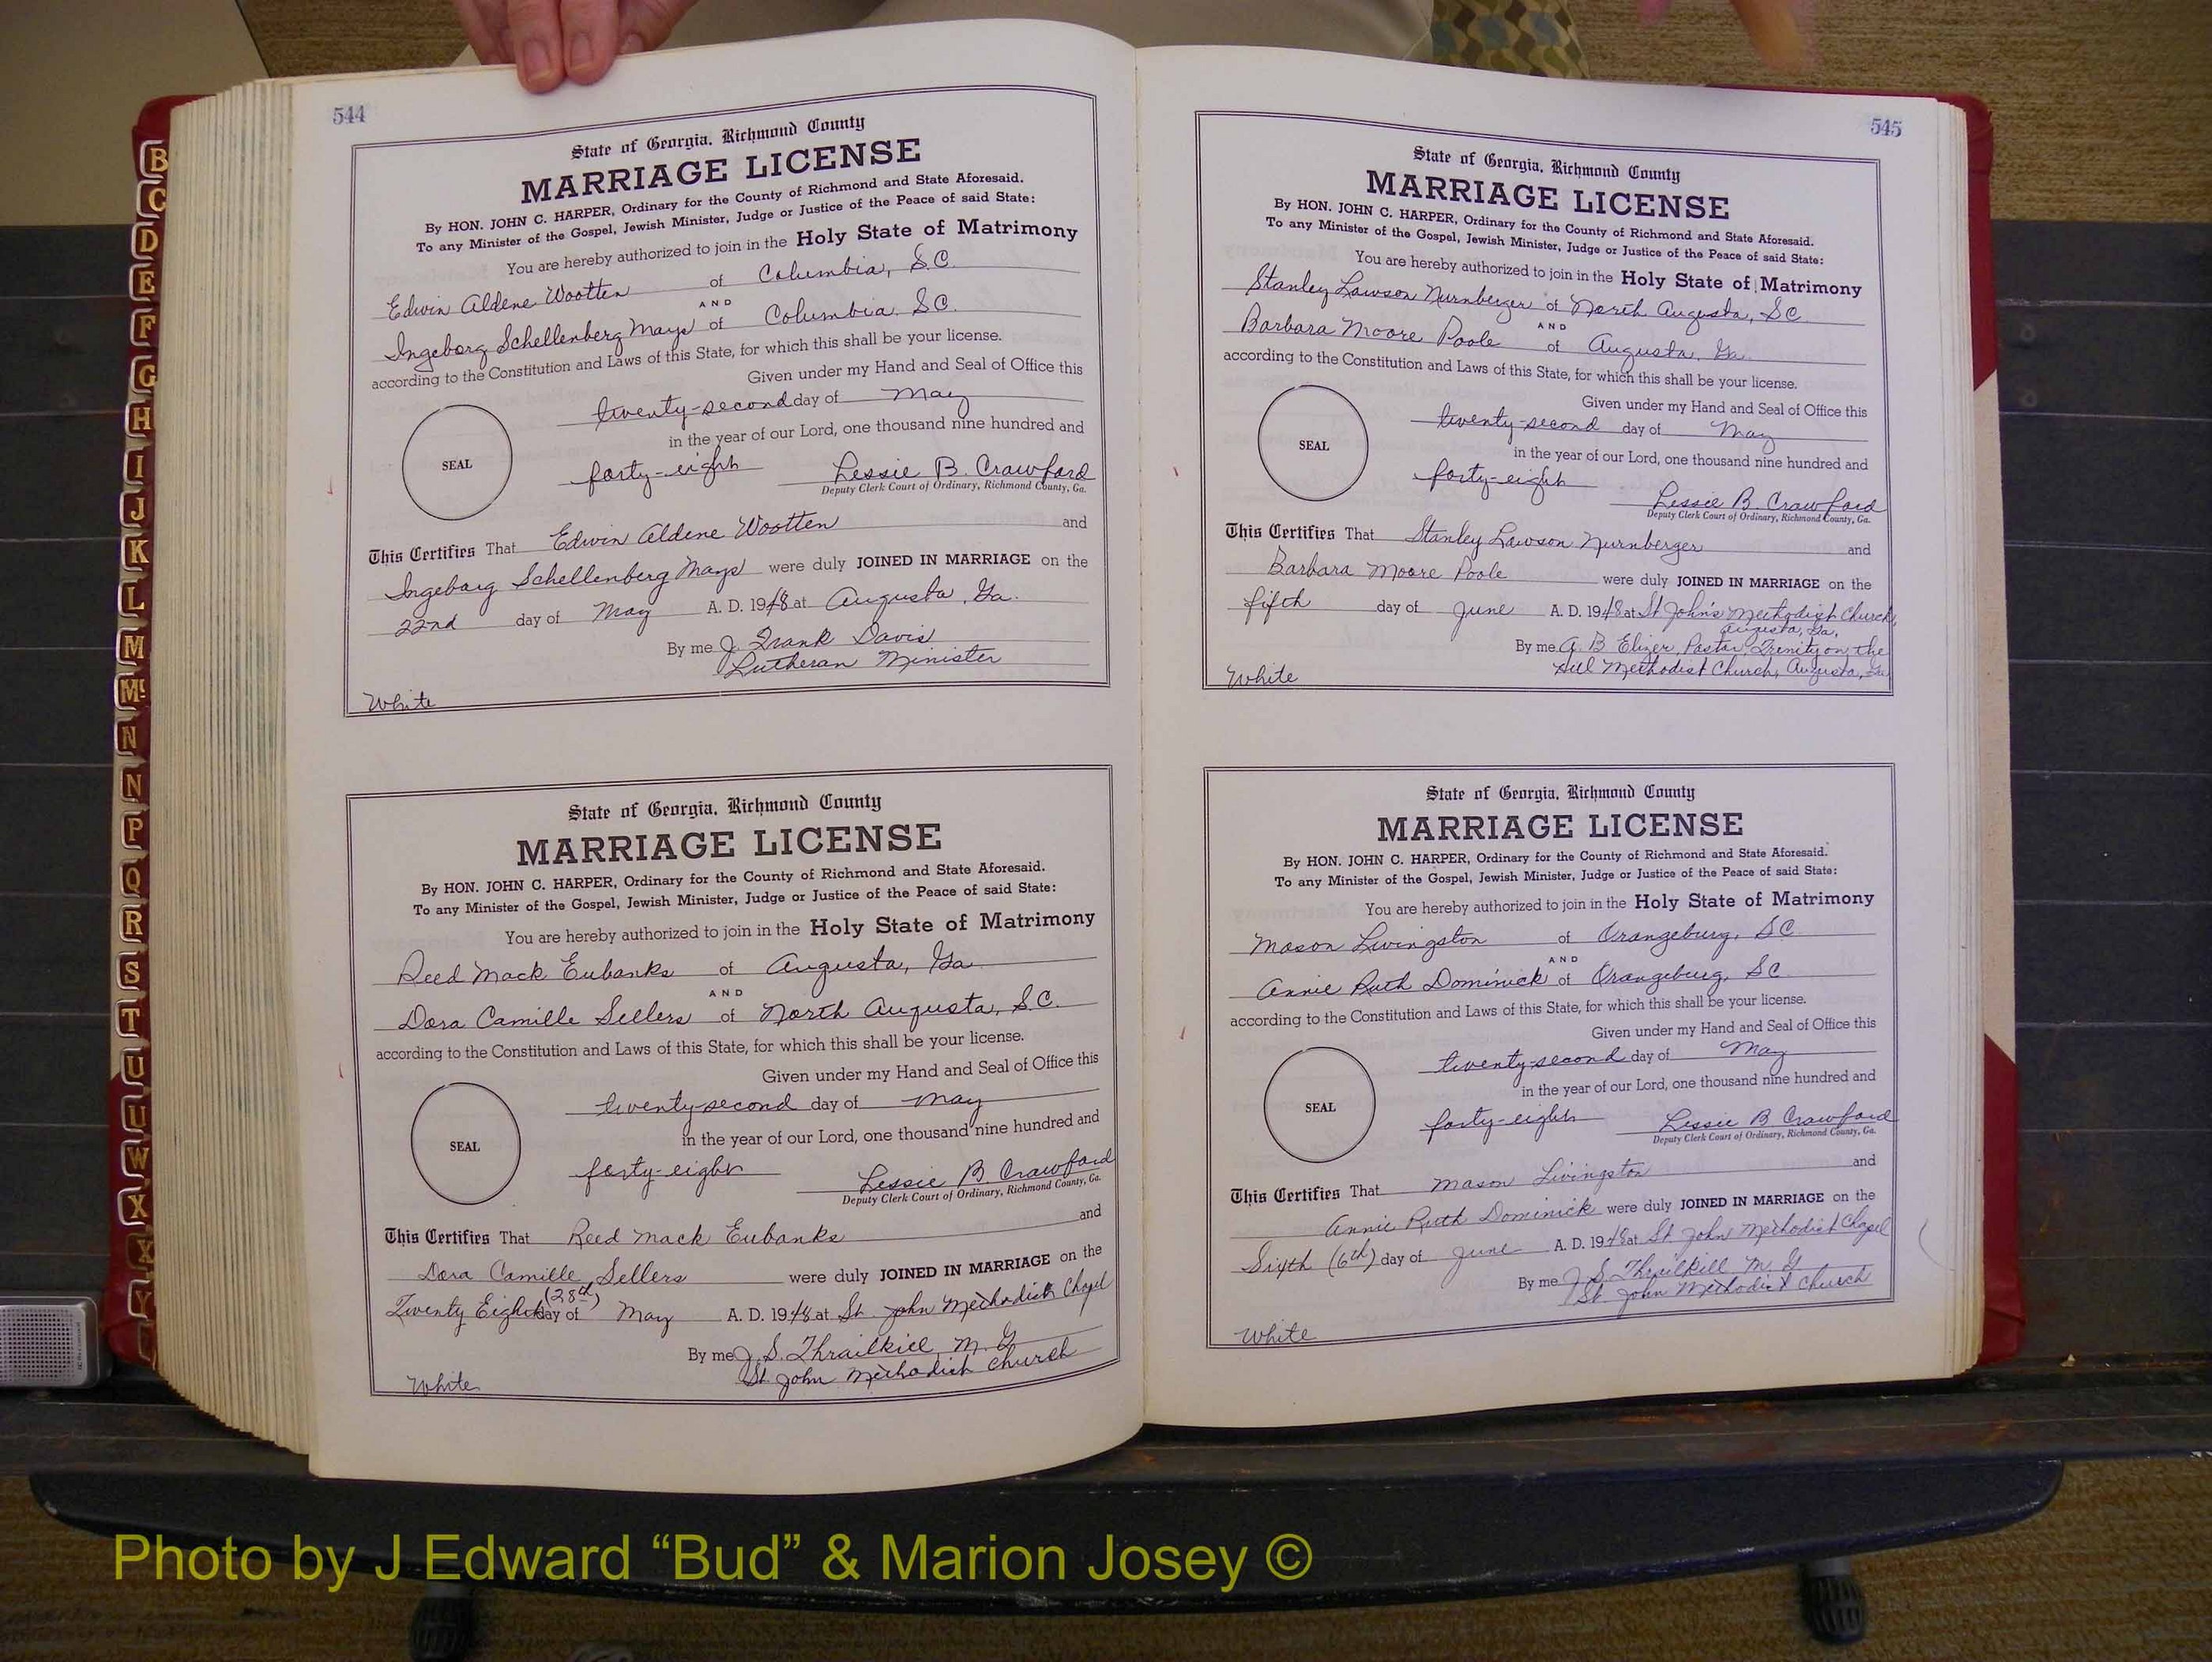 544
State of Georgia, Richmond County
MARRIAGE LICENSE
By HON. JOHN C. HARPER, Ordinary for the County of Richmond and State Aforesaid.
To any Minister of the Gospel, Jewish Minister, Judge or Justice of the Peace of said State:
You are hereby authorized to join in the Holy State of Matrimony
Edwin Aldene Wootten of Columbia, S.C.
AND
Ingeborg Schellenberg Mays of Columbia, S.C.
according to the Constitution and Laws of this State, for which this shall be your license.
Given under my Hand and Seal of Office this
twenty-second day of May
in the year of our Lord, one thousand nine hundred and
SEAL
forty-eight Lessie B. Crawford
Deputy Clerk Court of Ordinary, Richmond County, Ga.
This Certifies That Edwin Aldene Wootten and
Ingeborg Schellenberg Mays were duly JOINED IN MARRIAGE on the
22nd day of May A. D. 1948 at Augusta, Ga.
By me J. Frank Davis
Lutheran Minister
White
State of Georgia, Richmond County
MARRIAGE LICENSE
By HON. JOHN C. HARPER, Ordinary for the County of Richmond and State Aforesaid.
To any Minister of the Gospel, Jewish Minister, Judge or Justice of the Peace of said State:
You are hereby authorized to join in the Holy State of Matrimony
Reed Mack Eubanks of Augusta, Ga
AND
Dora Camille Sellers of North Augusta, S.C.
according to the Constitution and Laws of this State, for which this shall be your license.
Given under my Hand and Seal of Office this
twenty-second day of May
in the year of our Lord, one thousand nine hundred and
SEAL
forty-eight Lessie B. Crawford
Deputy Clerk Court of Ordinary, Richmond County, Ga.
This Certifies That Reed Mack Eubanks and
Dora Camille Sellers were duly JOINED IN MARRIAGE on the
Twenty Eighth (28th) day of May A. D. 1948 at St. John Methodist Chapel
By me J. S. Thrailkill, M. G
St. John Methodist Church
White
545
State of Georgia, Richmond County
MARRIAGE LICENSE
By HON. JOHN C. HARPER, Ordinary for the County of Richmond and State Aforesaid.
To any Minister of the Gospel, Jewish Minister, Judge or Justice of the Peace of said State:
You are hereby authorized to join in the Holy State of Matrimony
Stanley Lawson Nurnberger of North Augusta, S.C.
AND
Barbara Moore Poole of Augusta, Ga.
according to the Constitution and Laws of this State, for which this shall be your license.
Given under my Hand and Seal of Office this
twenty-second day of May
in the year of our Lord, one thousand nine hundred and
SEAL
forty-eight Lessie B. Crawford
Deputy Clerk Court of Ordinary, Richmond County, Ga.
This Certifies That Stanley Lawson Nurnberger and
Barbara Moore Poole were duly JOINED IN MARRIAGE on the
fifth day of June A. D. 1948 at St John's Methodist Church,
Augusta, Ga,
By me A. B. Elizer, Pastor, Trinity on the
Hill Methodist Church, Augusta, Ga
White
State of Georgia, Richmond County
MARRIAGE LICENSE
By HON. JOHN C. HARPER, Ordinary for the County of Richmond and State Aforesaid.
To any Minister of the Gospel, Jewish Minister, Judge or Justice of the Peace of said State:
You are hereby authorized to join in the Holy State of Matrimony
Mason Livingston of Orangeburg, S.C.
AND
Annie Ruth Dominick of Orangeburg, S.C
according to the Constitution and Laws of this State, for which this shall be your license.
Given under my Hand and Seal of Office this
twenty-second day of May
in the year of our Lord, one thousand nine hundred and
SEAL
forty-eight Lessie B. Crawford
Deputy Clerk Court of Ordinary, Richmond County, Ga.
This Certifies That Mason Livingston and
Annie Ruth Dominick were duly JOINED IN MARRIAGE on the
Sixth (6th) day of June A. D. 1948 at St. John Methodist Chapel
By me J. S. Thrailkill M. G
St. John Methodist Church
White
B
C
D
E
F
G
H
I
J
K
L
M
Mc
N
N
P
Q
R
S
T
U
U
W
X
X
Y
Photo by J Edward “Bud” & Marion Josey ©